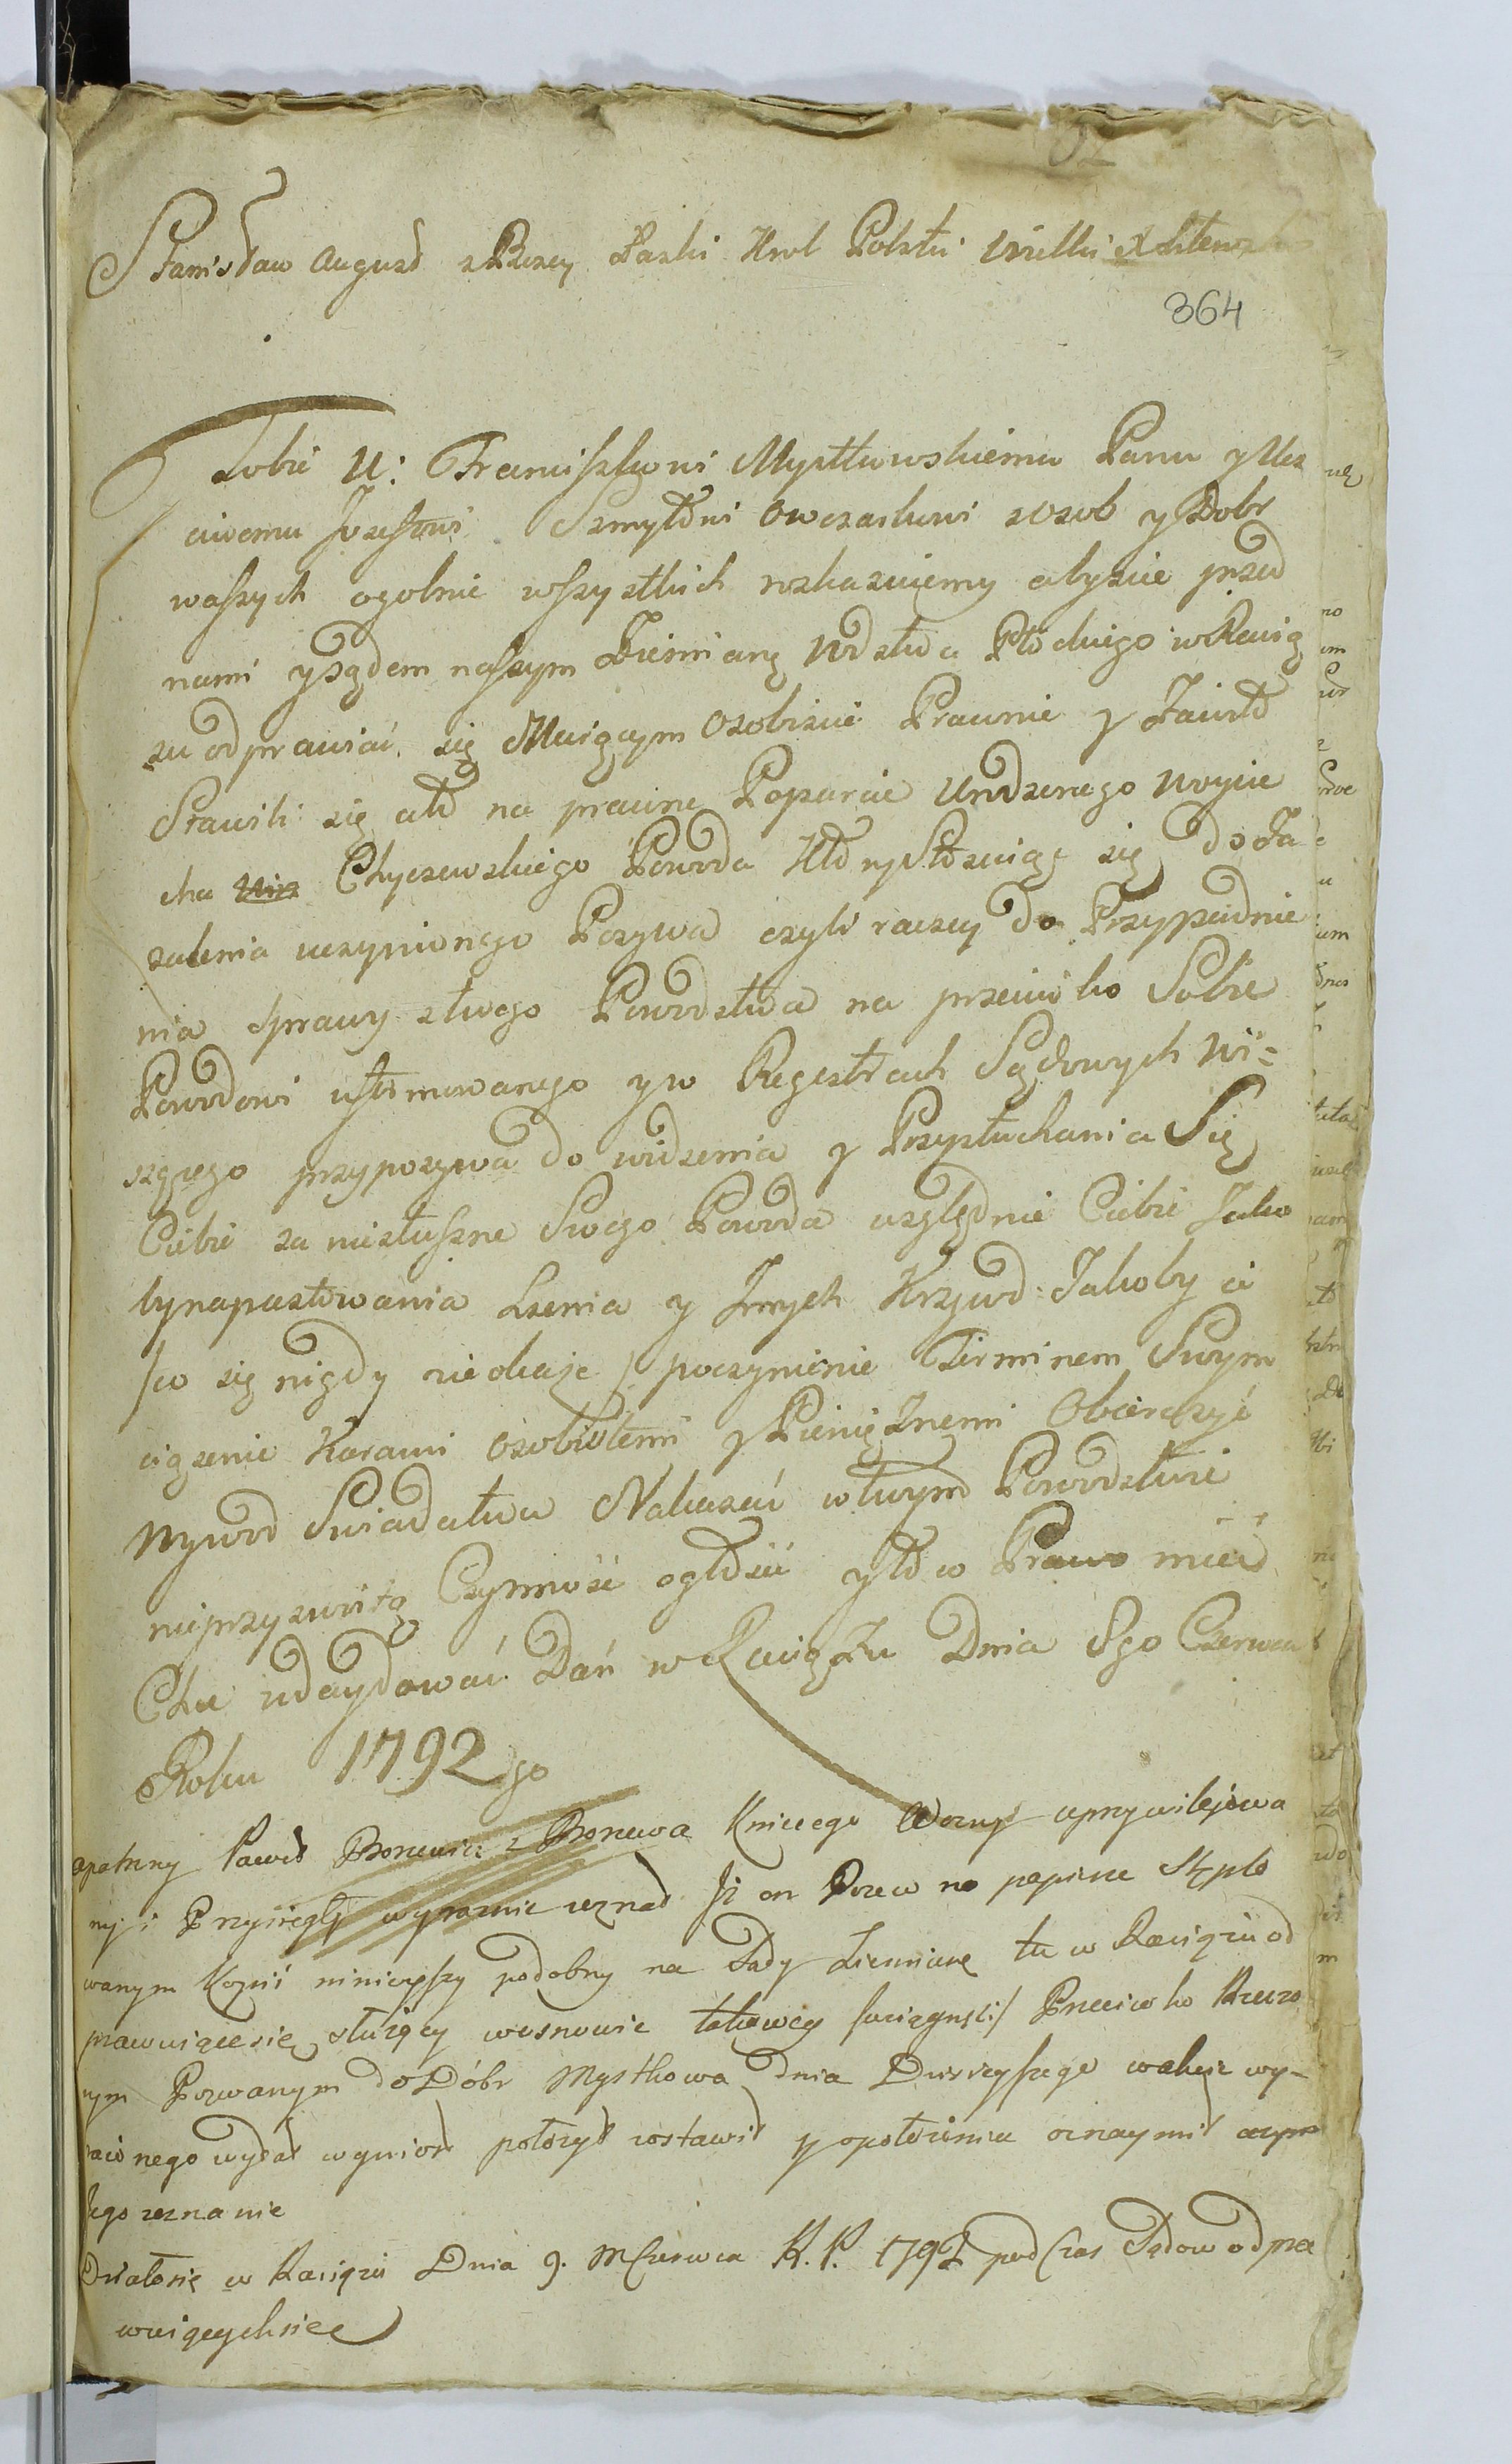 Stanisław August z Bozey Łaski Krol Polski Wielki X Litewski
364
Tobie U: Franciszkowi Mystkowskiemu Panu y Ucz
ciwemu Jozefowi Owczarkowi z Osob y Dobr
waszych ogolnie wszystkich rozkazuiemy abyscie przed
nami y Sądem naszym Ziemianą Wdztwa Płockiego w Raciąz
zu odprawiać się Maiącym Osobiscie Prawnie y Zawitł
Stawili się atł na prawne Poparcie Urodzonego Woycie
cha Chyczewskiego Powoda Ktł ry Stł suiąc się do Za
zalenia uczynionego Pozywa czyli raczey do Przypadnie
nia Sprawy z twego Powodztwa na przeciwko Sobie
Powodowi uformowanego y w Regestrach Sądowych Wi=
szącego przypozywa do widzenia y Przysłuchania Się
Ciebie za niesłuszne Swego Powoda względnie Ciebie Jako
by napastowania Lzenia y Innych Krzywd Jakoby ci
/co się nigdy nie okaże/ poczynienie Terminem Swym
ciązenie Karami Osobistemi y Pieniężnemi Obarczyć
Wywod Swiadatwa Nakazać w twym Powodztwie
nieprzyzwoitą Czynność ogłosić y tł co Prawo mieć
Chce udecydować Dań w Raciążu Dnia 8go Czerwca
Roku 1792go
opatrzny Paweł Boncwicz z Boncwa Kmiecego Wozny uprzywilejowa
ny i Przysięgły wyraznie zeznał Jż on Pozew na papierze Stęplo
wanym Kopii ninieyszy podobny na Sądy Ziemianę tu w Raciążu od
prawuiące się słuzący w osnowie takowey sciągnęli/ Przeciwko Rzeczo
nym Pozwanym do Dóbr Mystkowa dnia Dzisieyszego w akcie wy=
raźnego wydał wyniosł położył zostawił y opołozeniu oznaymił czym
Jego zeznanie
Działo się w Raciążu Dnia 9. MCzerwca R. P. 1792 pod Czas Sądow odpra
wuiących się